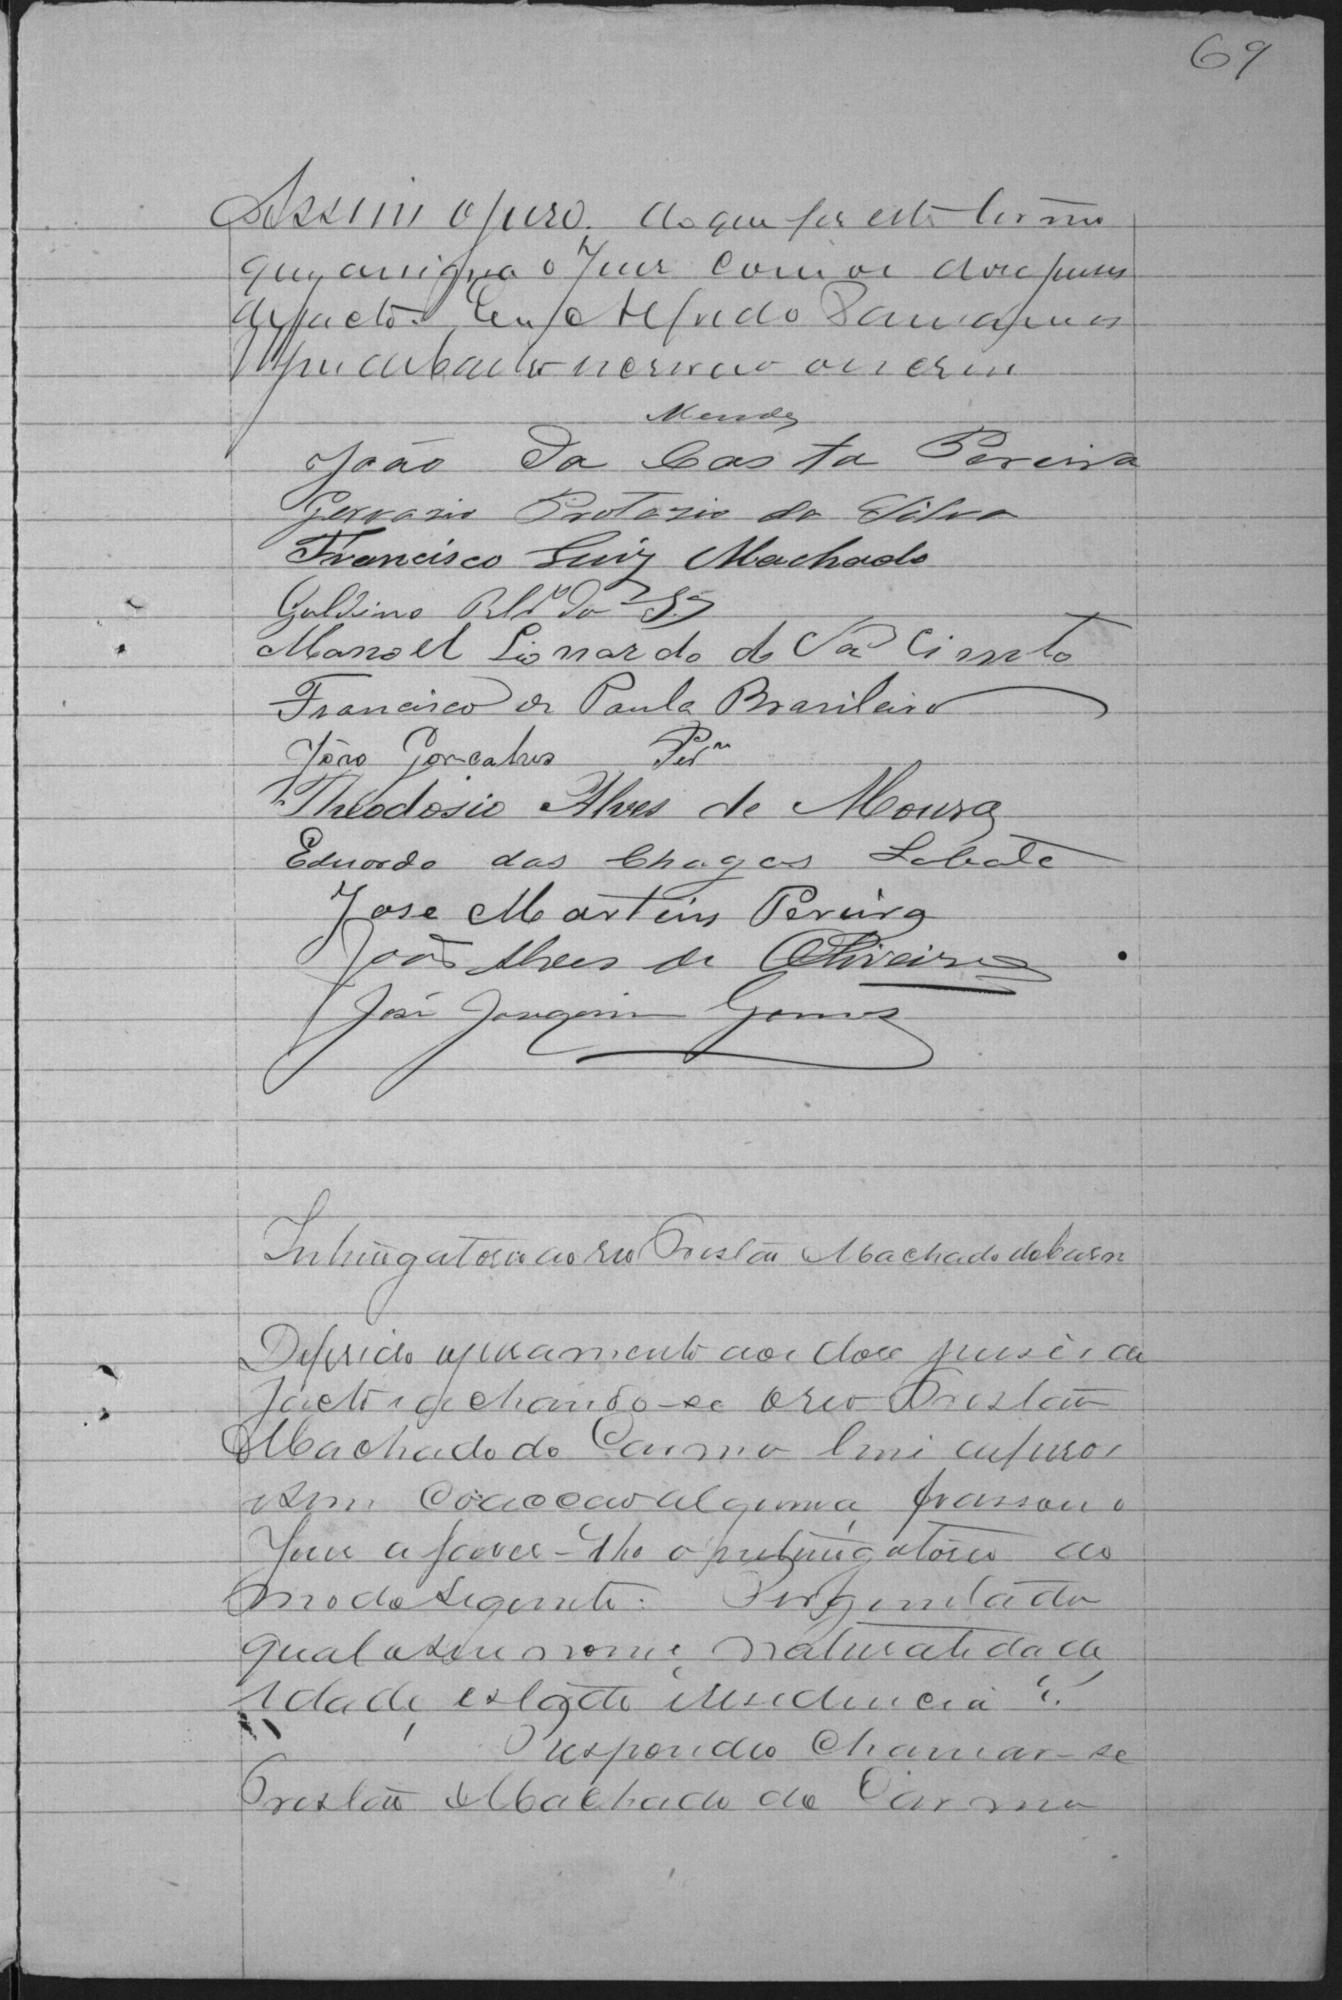 69
Assim o juro. do que fiz este termo
que assigna o Juiz com os doze juises
de facto. Eu, Alfredo
escrevi
Mendes
João da Costa Pereira
Gervasio Protasio da Silva
Francisco Luiz Machado
Galdino da
Manoel Lionardo do Nascimento
Francisco de Paula Brasileiro
João Gonçalves Perª
Theodosio Alves de Moura
Eduardo das Chagas Lobato
Jose Martins Pereira
João Alves de Oliveira
José Joaquim Gomes
Interrogatorio ao reo Tristão Machado do Carmo
Deferido o juramento aos doze juises de
facto e achando-se o reo Tristão
Machado do Carmo livre de ferros
e sem coacção alguma, passou o
Juiz a fazer-lhe o interrogatorio do
modo seguinte: Perguntado
qual o seu nome, naturalidade
idade, estado e residencia?
Respondeo chamar-se
Tristão Machado do Carmo